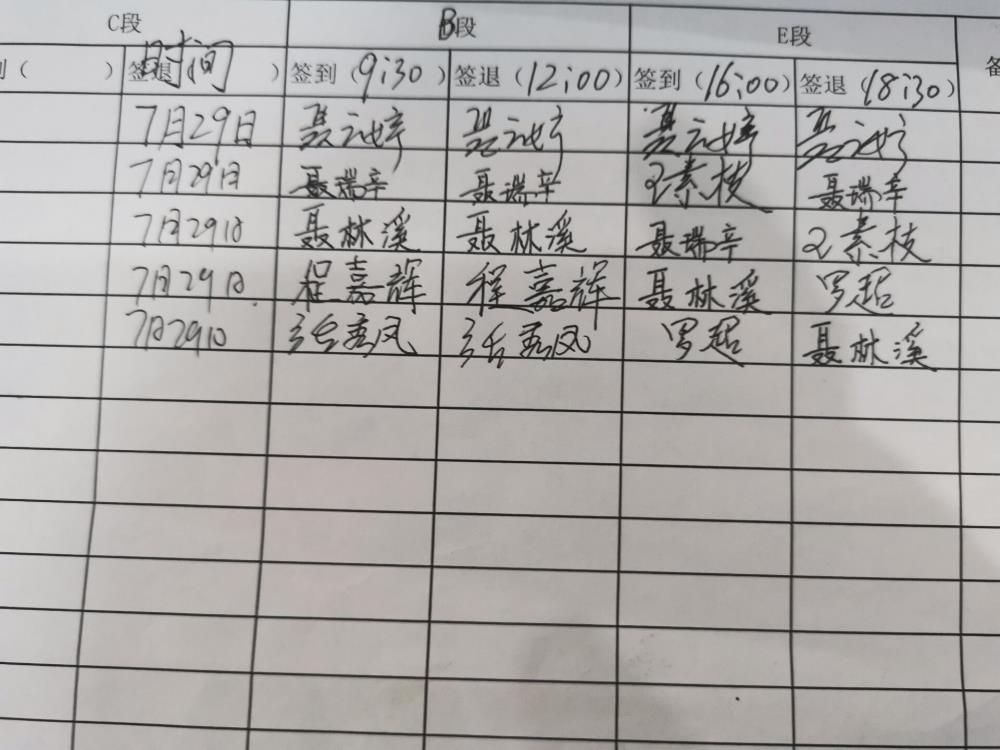 C段 B段 E段
到( ) 签退 时间 ) 签到(9:30) 签退(12:00) 签到(16:00) 签退(18:30) 备
7月29日 聂云婷 聂云婷 聂云婷 聂云婷
7月29日 聂瑞辛 聂瑞辛 素枝 聂瑞辛
7月29日 聂林溪 聂林溪 聂瑞辛 素枝
7月29日. 程嘉辉 程嘉辉 聂林溪 罗起
7月29日 罗起 聂林溪